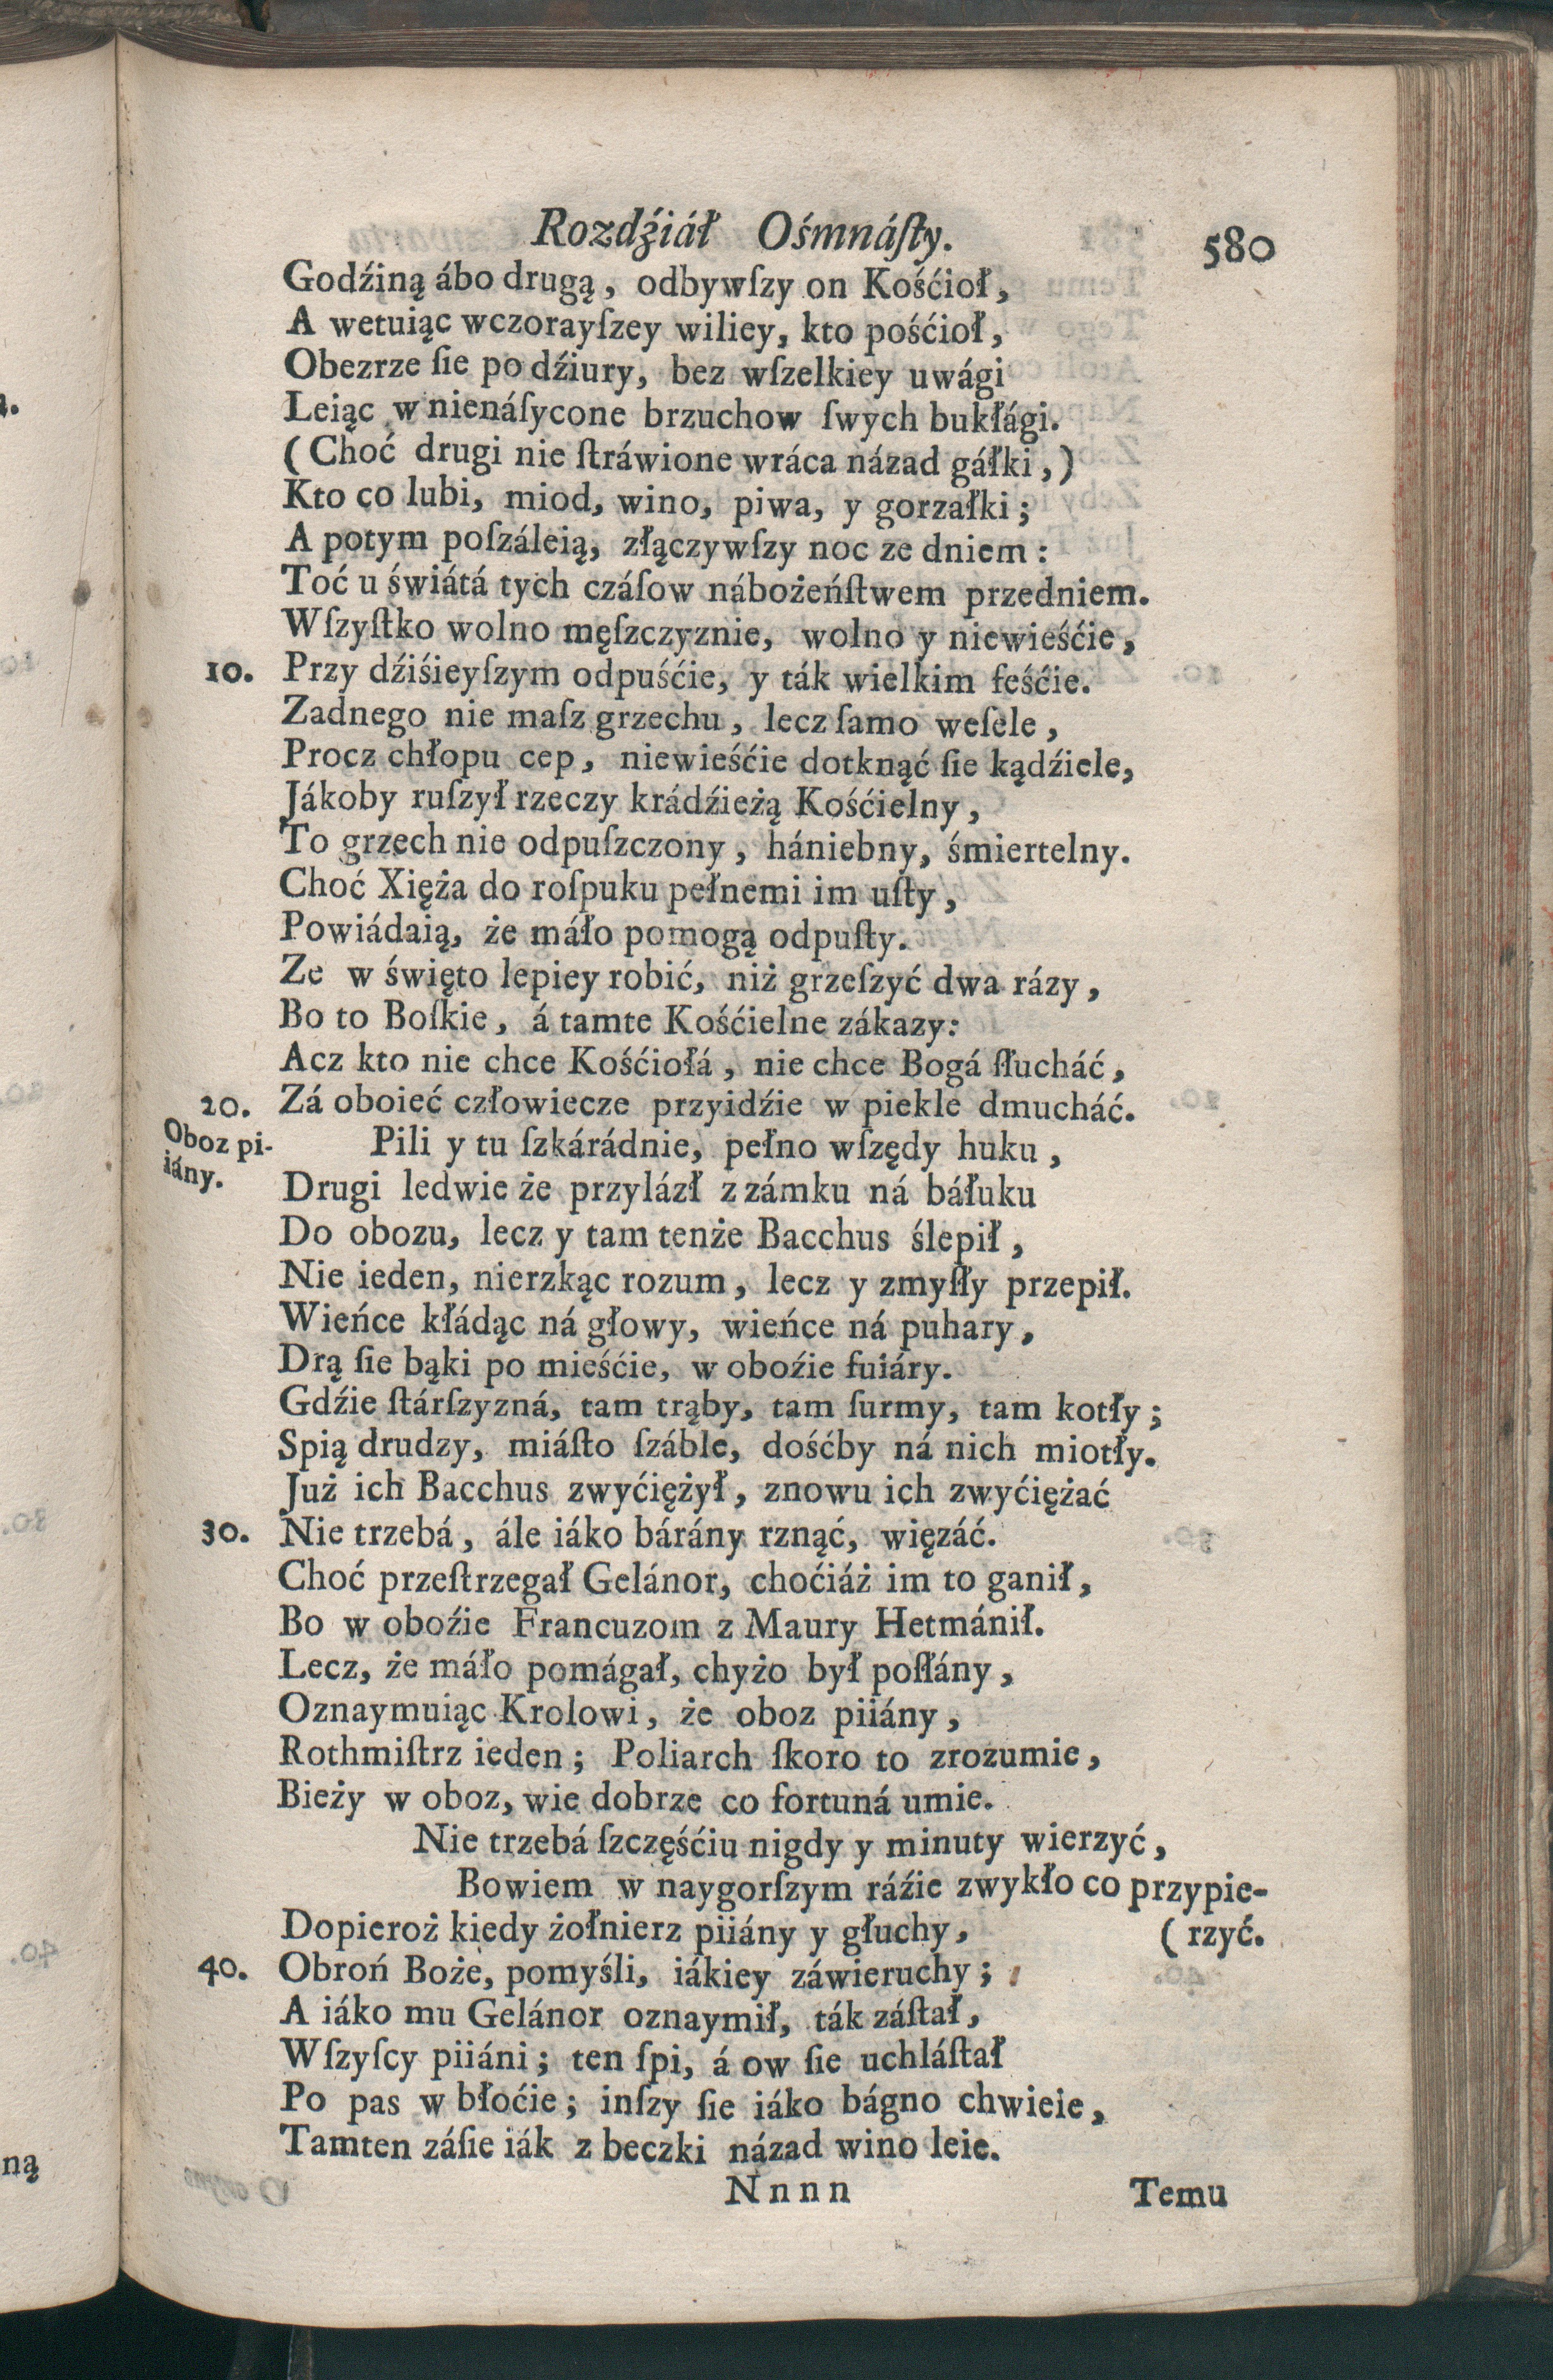 Rozdźiáł Ośmnáſty. 580
Godźiną ábo drugą, odbywſzy on Kośćioł,
A wetuiąc wczorayſzey wiliey, kto pośćioł,
Obezrze ſie po dźiury, bez wſzelkiey uwági
Leiąc w nienáſycone brzuchow ſwych bukłági.
(Choć drugi nie ſtráwione wráca názad gáłki,)
Kto co lubi, miod, wino, piwa, y gorzałki;
A potym poſzáleią, złączywſzy noc ze dniem:
Toć u świátá tych czáſow nábożeńſtwem przedniem.
Wſzyſtko wolno męſzczyznie, wolno y niewieśćie,
10. Przy dźiśieyſzym odpuśćie, y ták wielkim feśćie.
Zadnego nie maſz grzechu, lecz ſamo weſele,
Procz chłopu cep, niewieśćie dotknąć ſie kądźiele,
Jákoby ruſzył rzeczy krádźieżą Kośćielny,
To grzech nie odpuſzczony, hániebny, śmiertelny.
Choć Xięża do roſpuku pełnemi im uſty,
Powiádaią, że máło pomogą odpuſty.
Ze w święto lepiey robić, niż grzeſzyć dwa rázy,
Bo to Boſkie, á tamte Kośćielne zákazy:
Acz kto nie chce Kośćiołá, nie chce Bogá ſłucháć,
20. Zá oboieć człowiecze przyidźie w piekle dmucháć.
Oboz pi-
iány.
Pili y tu ſzkárádnie, pełno wſzędy huku,
Drugi ledwie że przylázł z zámku ná báłuku
Do obozu, lecz y tam tenże Bacchus ślepił,
Nie ieden, nierzkąc rozum, lecz y zmyſły przepił.
Wieńce kłádąc ná głowy, wieńce ná puhary,
Drą ſie bąki po mieśćie, w oboźie fuiáry.
Gdźie ſtárſzyzná, tam trąby, tam ſurmy, tam kotły;
Spią drudzy, miáſto ſzáble, dośćby ná nich miotły.
Już ich Bacchus zwyćiężył, znowu ich zwyćiężać
30. Nie trzebá, ále iáko bárány rznąć, więzáć.
Choć przeſtrzegał Gelánor, choćiáż im to ganił,
Bo w oboźie Francuzom z Maury Hetmánił.
Lecz, że máło pomágał, chyżo był poſłány,
Oznaymuiąc Krolowi, że oboz piiány,
Rothmiſtrz ieden; Poliarch ſkoro to zrozumie,
Bieży w oboz, wie dobrze co fortuná umie.
Nie trzebá ſzczęśćiu nigdy y minuty wierzyć,
Bowiem w naygorſzym ráźie zwykło co przypie-
Dopieroż kiedy żołnierz piiány y głuchy, (rzyć.
40. Obroń Boże, pomyśli, iákiey záwieruchy;
A iáko mu Gelánor oznaymił, ták záſtał,
Wſzyſcy piiáni; ten ſpi, á ow ſie uchláſtał
Po pas w błoćie; inſzy ſie iáko bágno chwieie,
Tamten záſie iák z beczki názad wino leie.
Nnnn Temu
ną